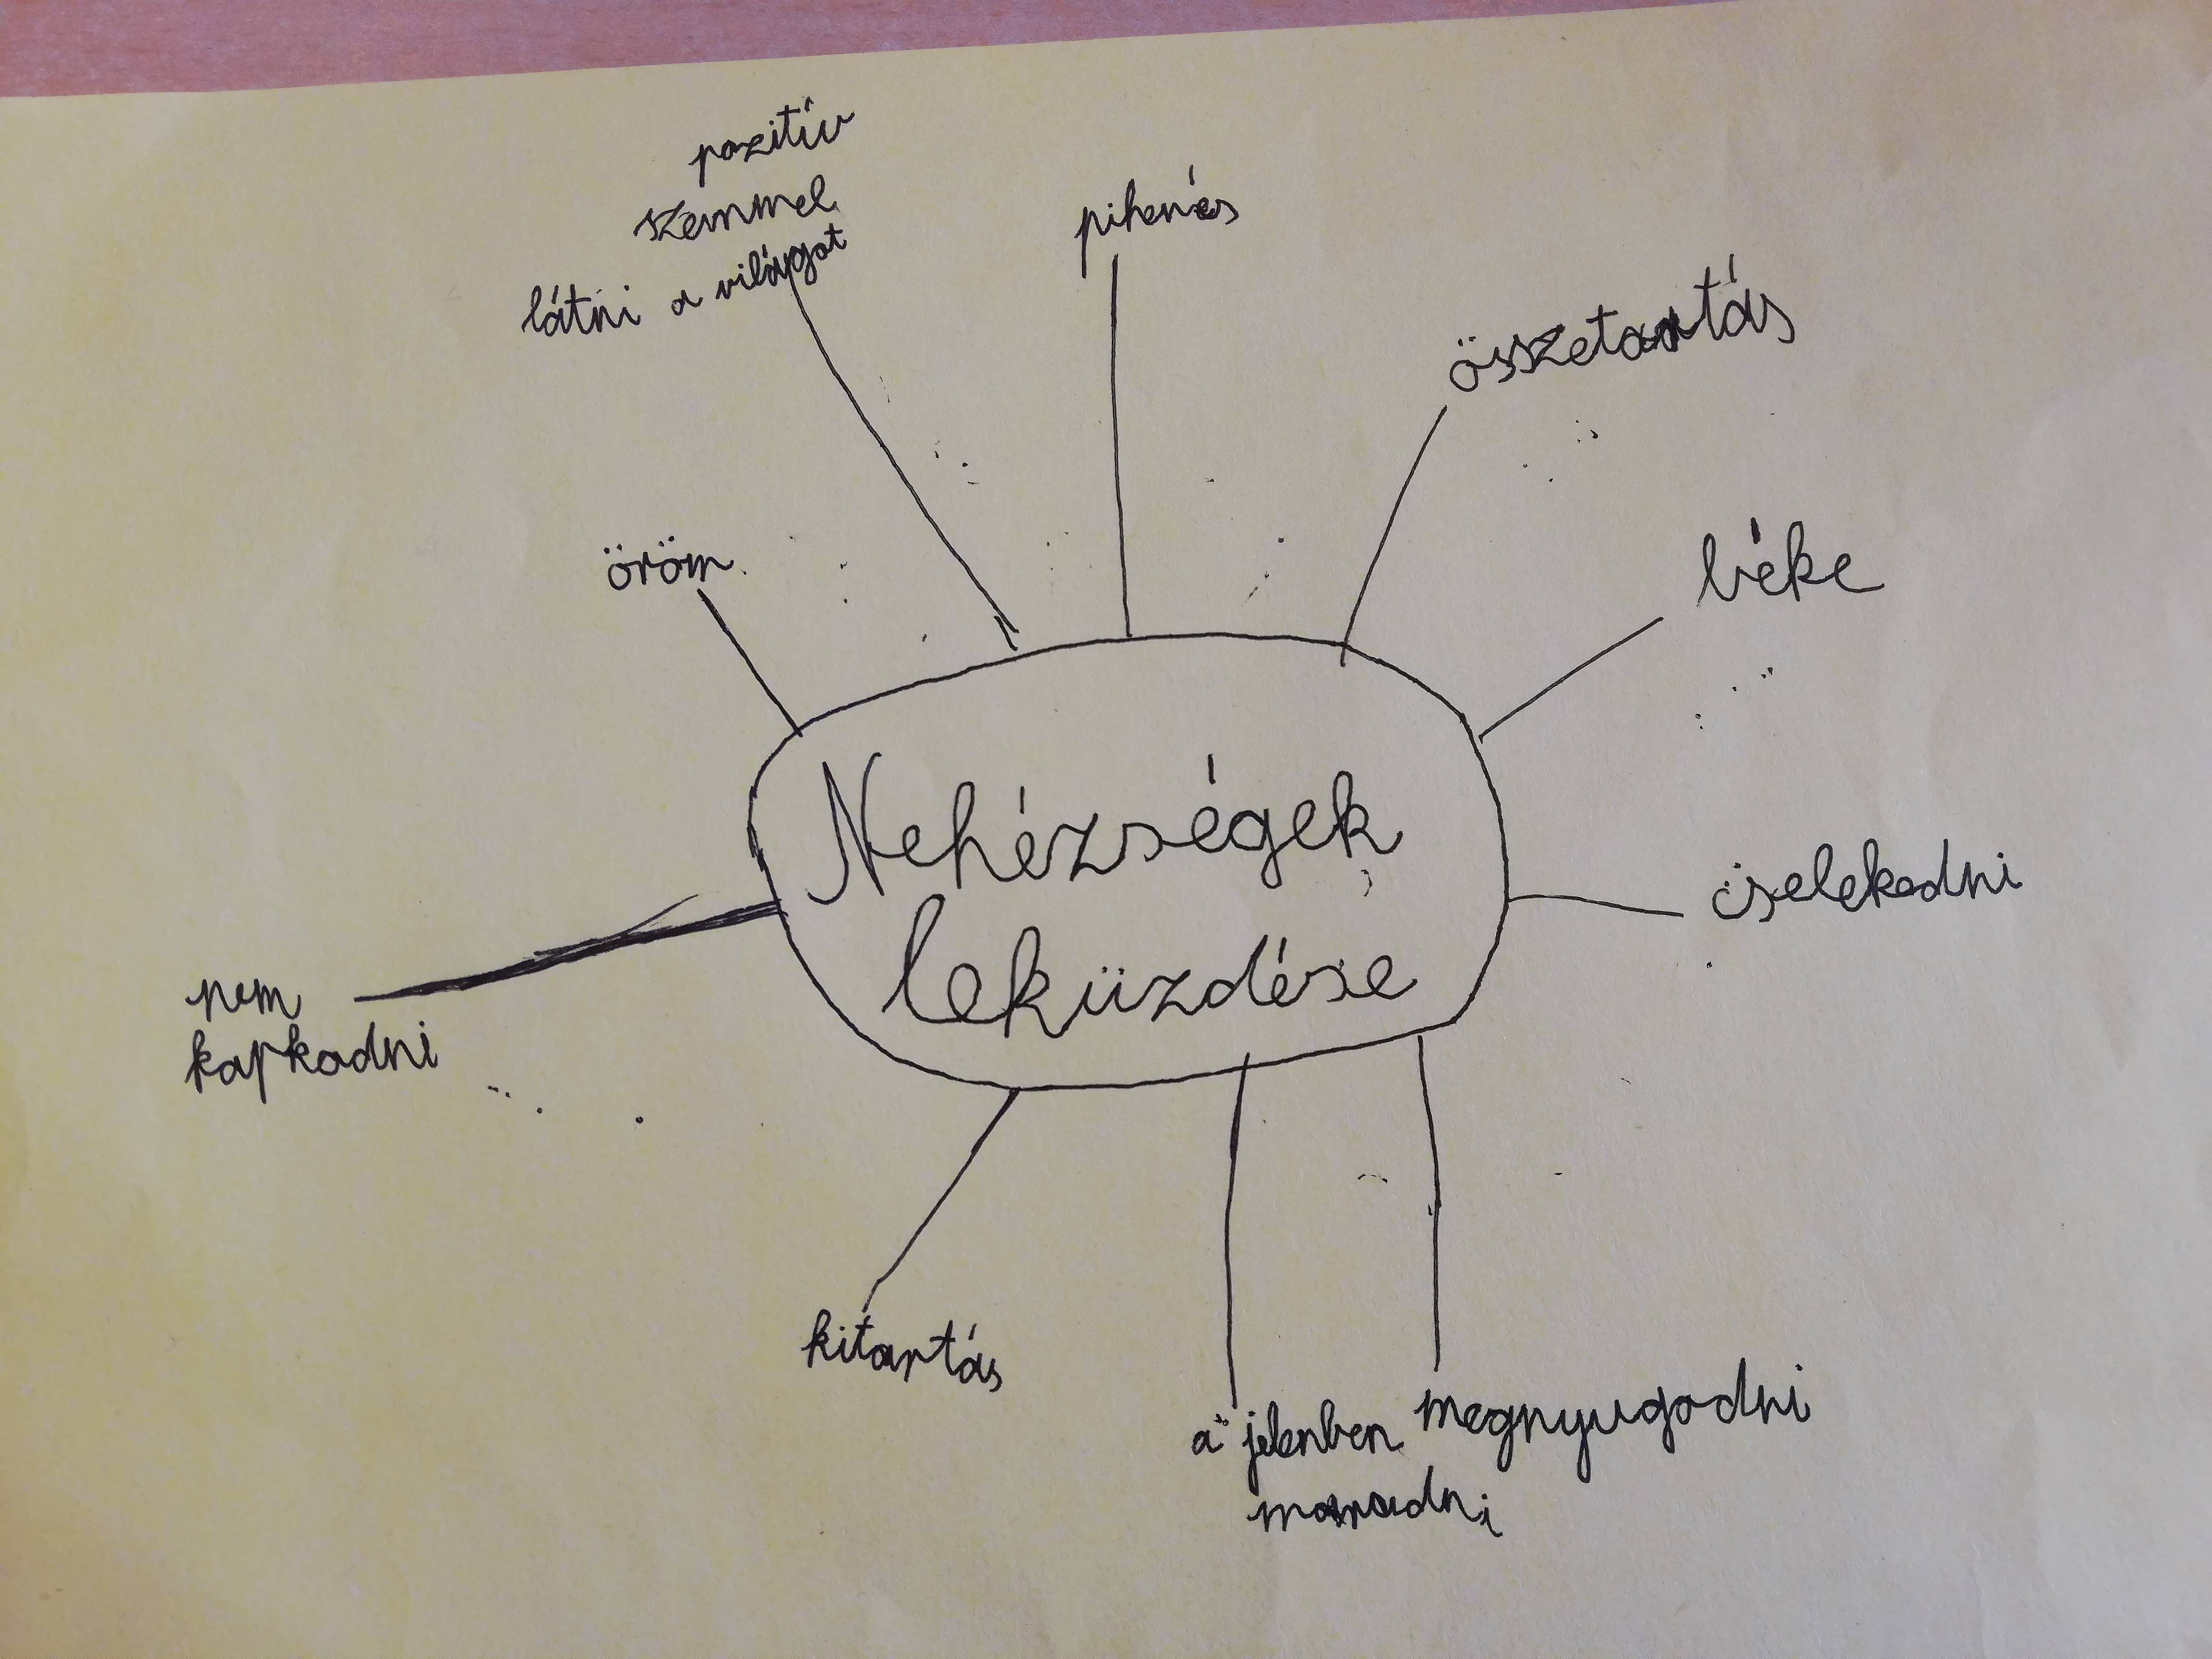 pozitív
szemmel
látni a világot
pihenés
összetartás
öröm
béke
Nehézségek
leküzdése
cselekedni
nem
kapkodni
kitartás
a jelenben
maradni
megnyugodni